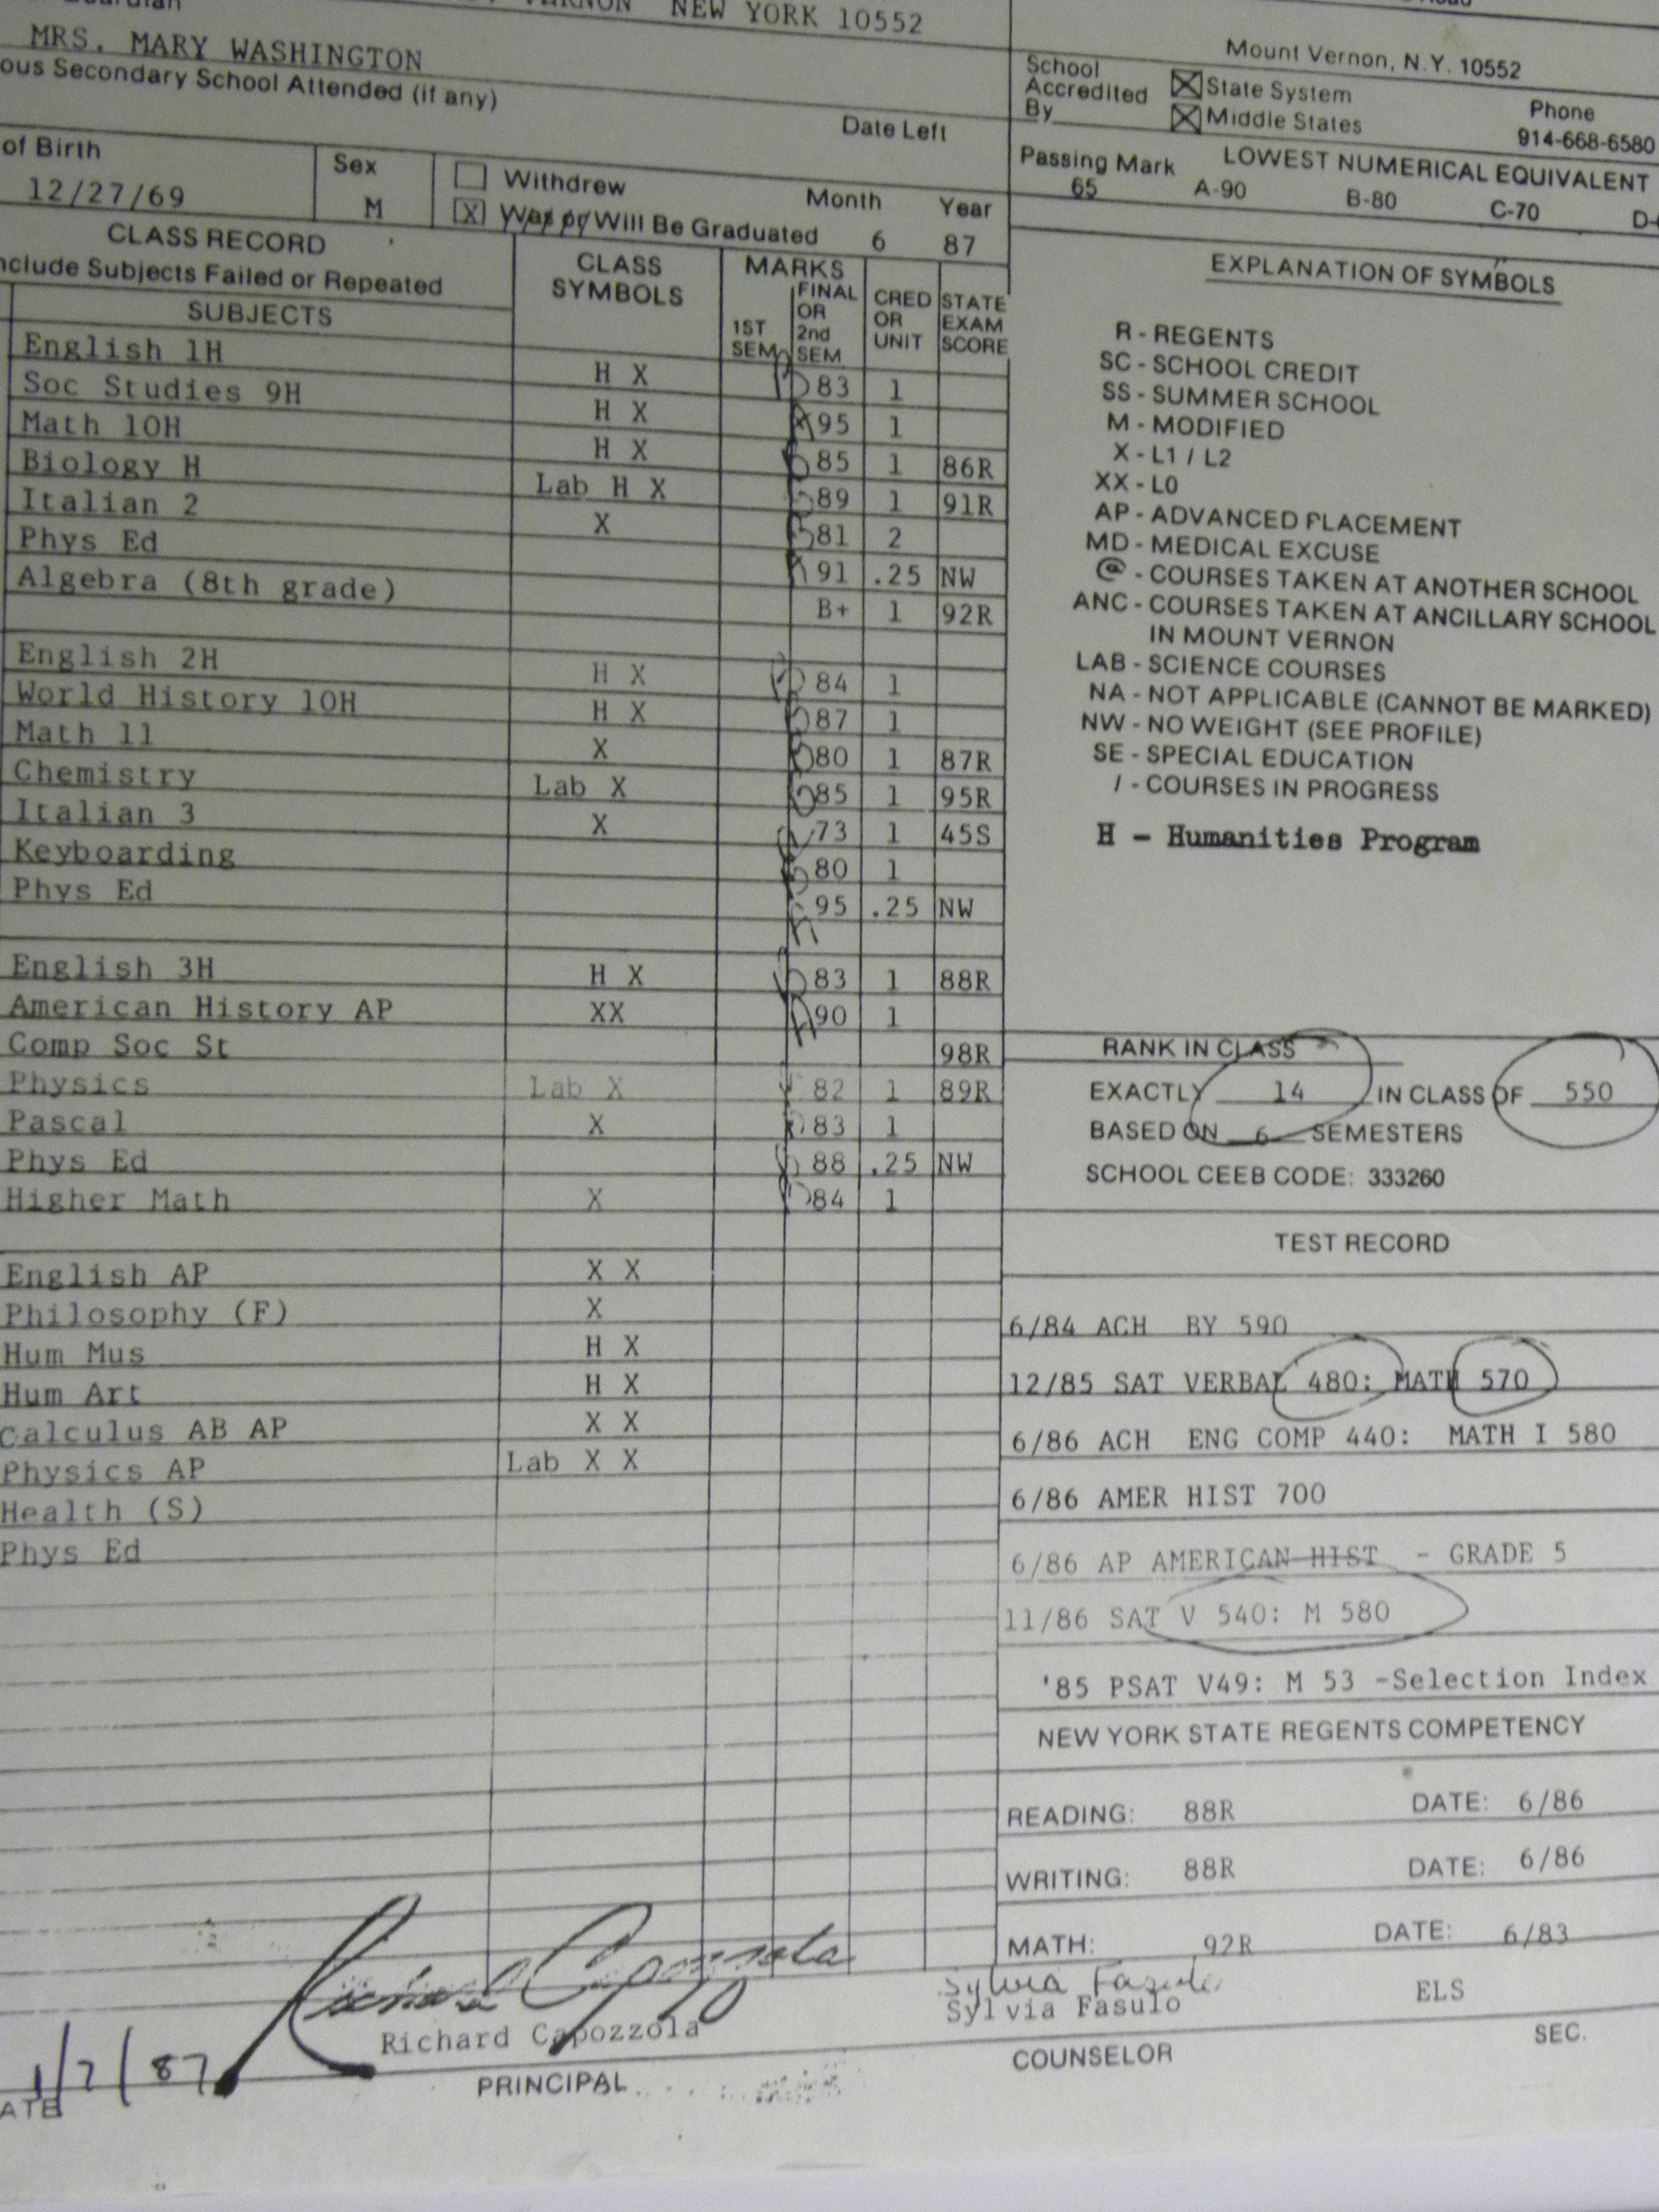 NEW YORK 10552
MRS. MARY WASHINGTON
ous Secondary School Attended (if any)
Date Left
of Birth
12/27/69
Sex
M
Withdrew
X Was or Will Be Graduated
Month
6
Year
87
Mount Vernon, N.Y. 10552
School
Accredited
By
State System
Middle States
Phone
914-668-6580
Passing Mark
65
LOWEST NUMERICAL EQUIVALENT
A-90 B-80 C-70
CLASS RECORD
nclude Subjects Failed or Repeated
SUBJECTS
CLASS
SYMBOLS
MARKS
1ST
SEM
FINAL
OR
2nd
SEM
CRED
OR
UNIT
STATE
EXAM
SCORE
English 1H H X 83 1
Soc Studies 9H H X 95 1
Math 10H H X 85 1 86R
Biology H Lab H X 89 1 91R
Italian 2 X 81 2
Phys Ed 91 .25 NW
Algebra (8th grade) B+ 1 92R
English 2H H X 84 1
World History 10H H X 87 1
Math 11 X 80 1 87R
Chemistry Lab X 85 1 95R
Italian 3 X 73 1 45S
Keyboarding 80 1
Phys Ed 95 .25 NW
English 3H H X 83 1 88R
American History AP XX 90 1
Comp Soc St 98R
Physics Lab X 82 1 89R
Pascal X 83 1
Phys Ed 88 .25 NW
Higher Math X 84 1
English AP X X
Philosophy (F) X
Hum Mus H X
Hum Art H X
Calculus AB AP X X
Physics AP Lab X X
Health (S)
Phys Ed
EXPLANATION OF SYMBOLS
R - REGENTS
SC - SCHOOL CREDIT
SS - SUMMER SCHOOL
M - MODIFIED
X - L1 / L2
XX - L0
AP - ADVANCED PLACEMENT
MD - MEDICAL EXCUSE
@ - COURSES TAKEN AT ANOTHER SCHOOL
ANC - COURSES TAKEN AT ANCILLARY SCHOOL
IN MOUNT VERNON
LAB - SCIENCE COURSES
NA - NOT APPLICABLE (CANNOT BE MARKED)
NW - NO WEIGHT (SEE PROFILE)
SE - SPECIAL EDUCATION
/ - COURSES IN PROGRESS
H - Humanities Program
RANK IN CLASS
EXACTLY 14 IN CLASS OF 550
BASED ON 6 SEMESTERS
SCHOOL CEEB CODE: 333260
TEST RECORD
6/84 ACH BY 590
12/85 SAT VERBAL 480: MATH 570
6/86 ACH ENG COMP 440: MATH I 580
6/86 AMER HIST 700
6/86 AP AMERICAN HIST - GRADE 5
11/86 SAT V 540: M 580
'85 PSAT V49: M 53 -Selection Index
NEW YORK STATE REGENTS COMPETENCY
READING: 88R DATE: 6/86
WRITING: 88R DATE: 6/86
MATH: 92R DATE: 6/83
Richard Capozzola
Richard Capozzola
PRINCIPAL
Sylvia Fasulo
Sylvia Fasulo
COUNSELOR
ELS
SEC.
1/7/87
ATE